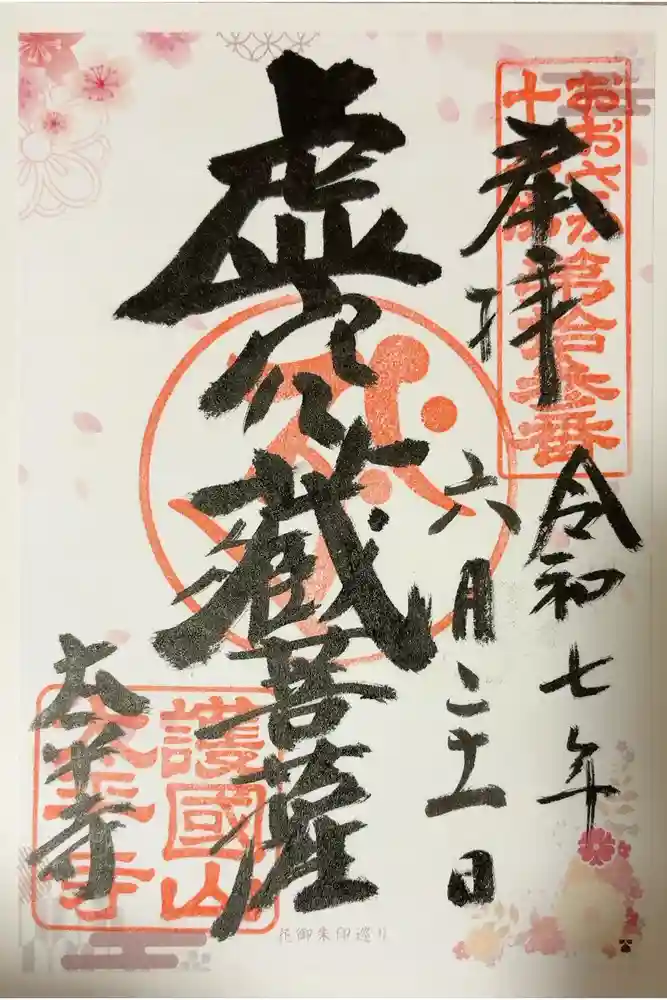 おおさか
十三佛
第拾参番
奉拝
令和七年
六月二十一日
虚空蔵菩薩
太平寺
護國山
太平寺
花御朱印巡り